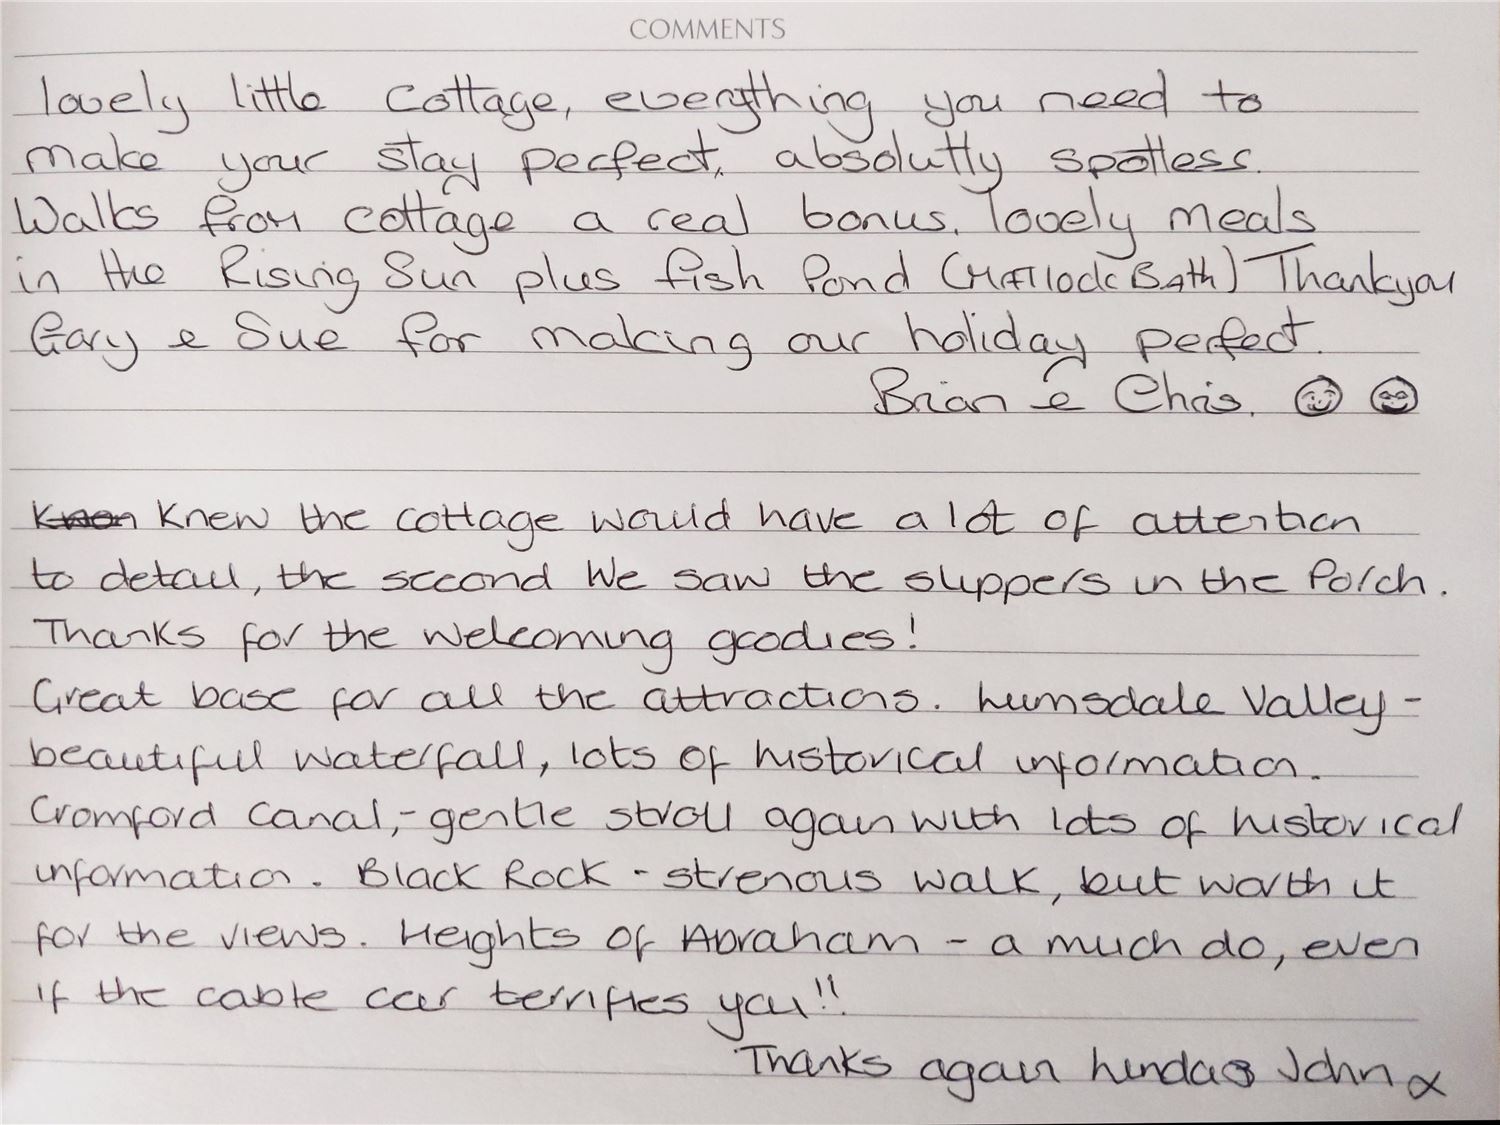 COMMENTS
lovely little cottage, everything you need to
make your stay perfect, absolutly spotless.
Walks from cottage a real bonus. lovely meals
in the Rising Sun plus fish Pond (MATlock BAth) Thankyou
Gary & Sue for making our holiday perfect.
Brian & Chris. ☺ ☺
Knew the cottage would have a lot of attention
to detail, the second We saw the slippers in the Porch.
Thanks for the welcoming goodies!
Great base for all the attractions. Lumsdale Valley -
beautiful waterfall, lots of historical information.
Cromford Canal,- gentle stroll again with lots of historical
information. Black Rock - strenous walk, but worth it
for the views. Heights of Abraham - a much do, even
if the cable car terrifies you!!
Thanks again Linda & John x